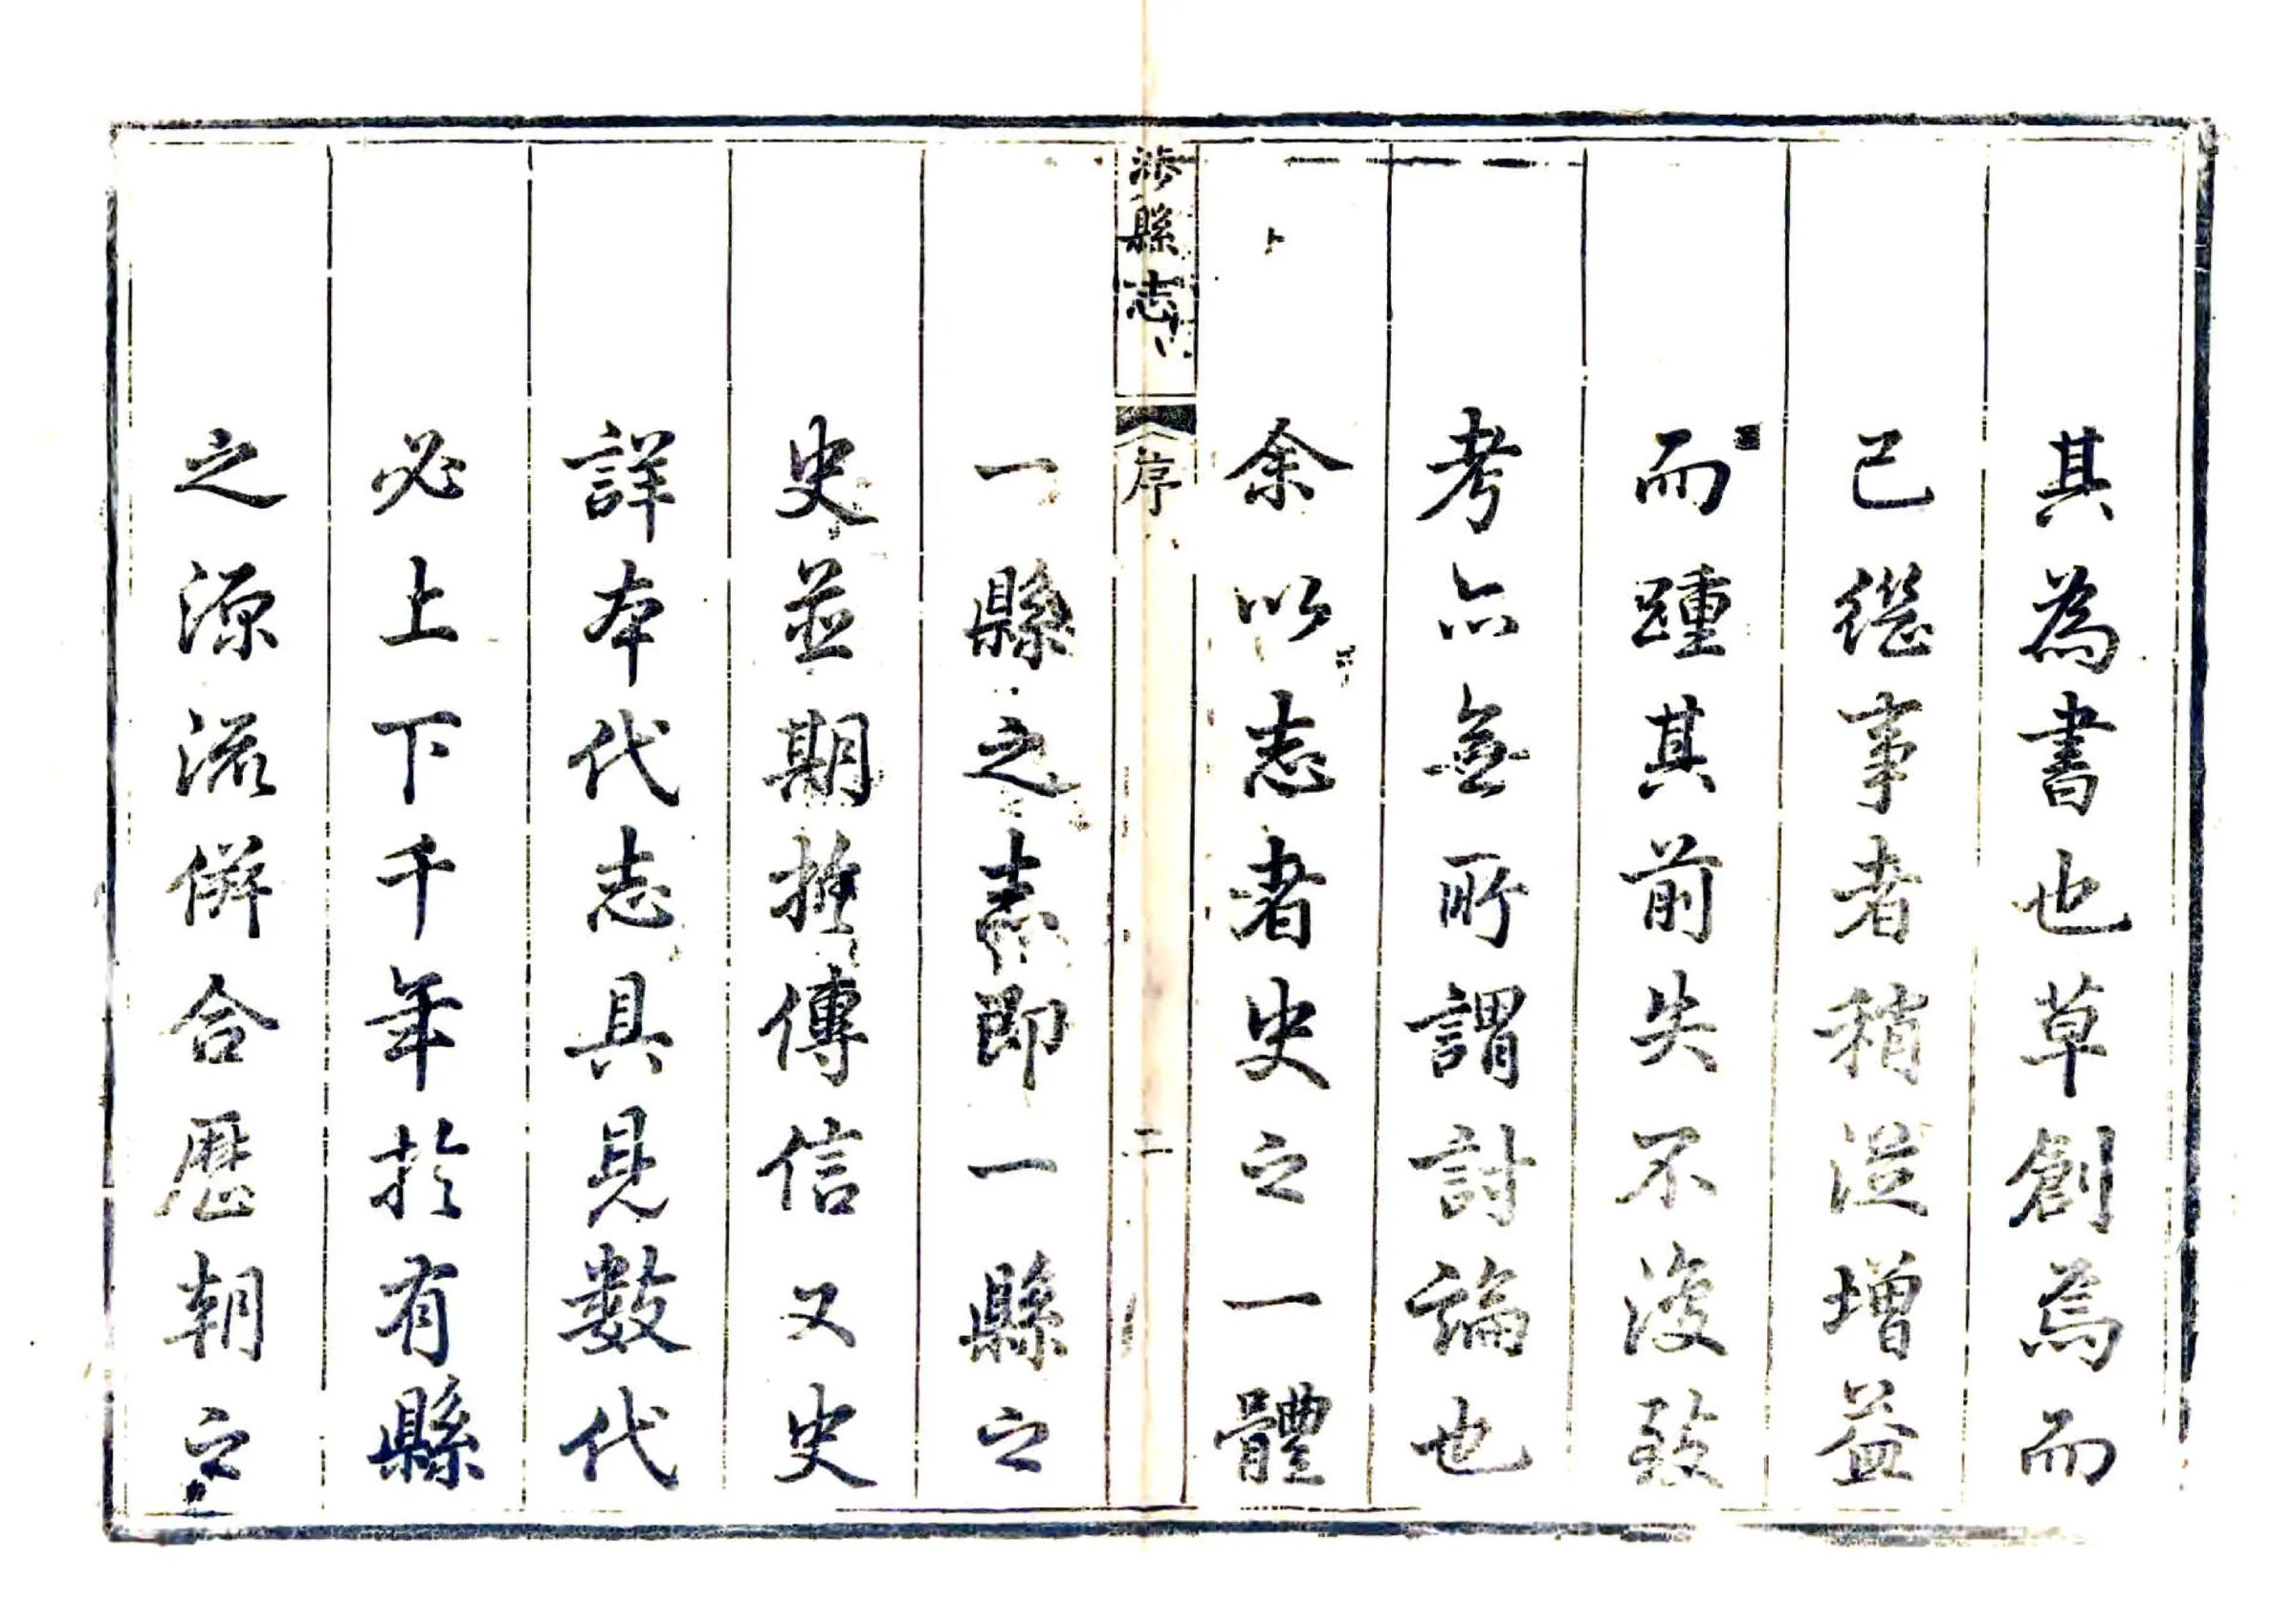 其為書也草創焉而
已繼事者稍從增益
而踵其前失不復致
考亦無所謂討論也
余以志者史之一體
涉縣志
序
二
一縣之志即一縣之
史並期推傳信又史
詳本代志具見數代
必上下千年於有縣
之源流併合歷朝之